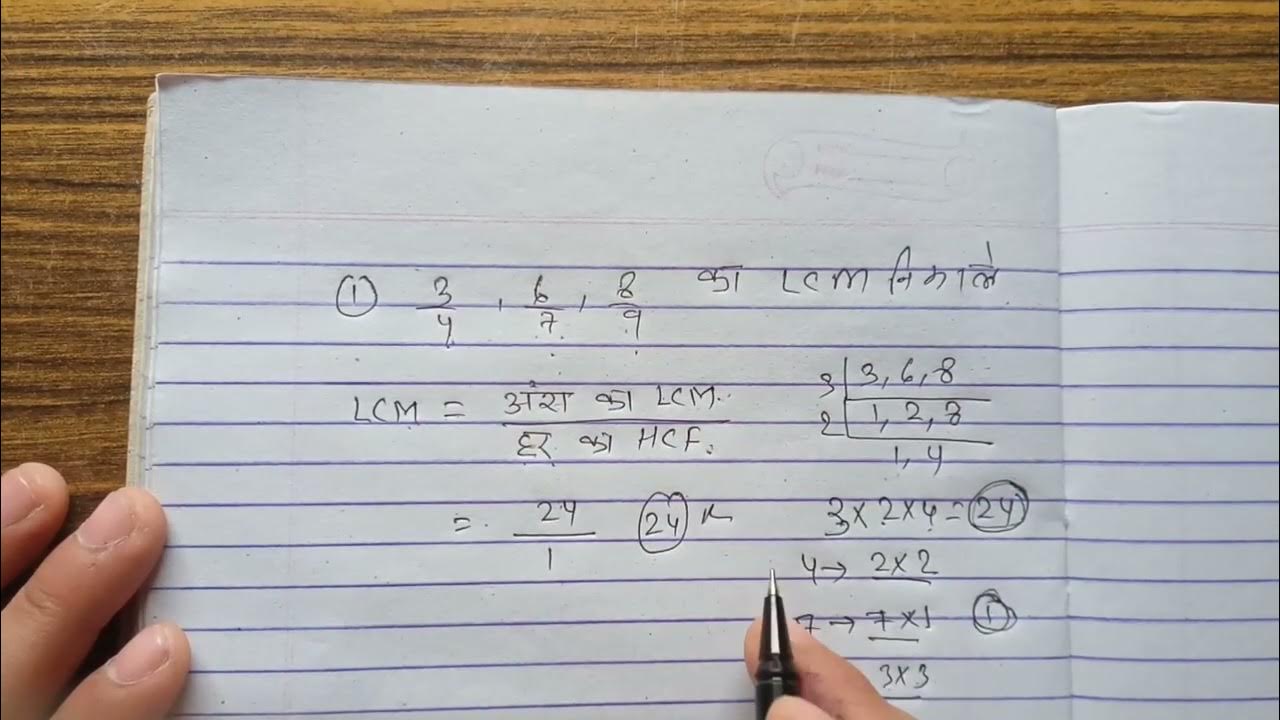 ① 3/4 , 6/7 , 8/9 का LCM निकाले
LCM = अंश का LCM / हर का HCF.
= 24/1 24
3 | 3, 6, 8
2 | 1, 2, 8
1, 4
3 x 2 x 4 = 24
4 → 2 x 2
7 → 7 x 1 ①
3 x 3